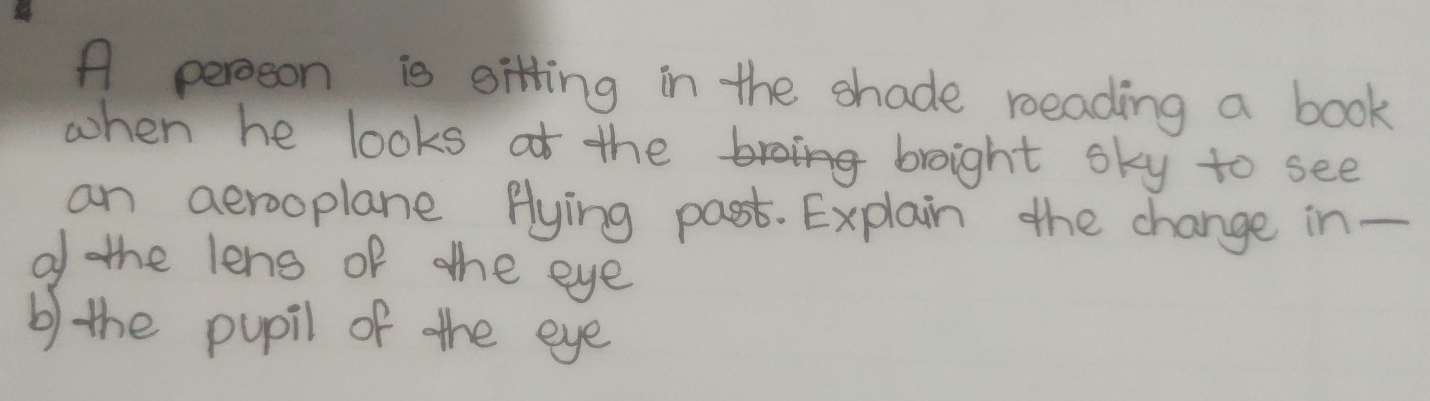 A person is sitting in the shade reading a book
when he looks at the braing bright sky to see
an aeroplane flying past. Explain the change in—
a) the lens of the eye
b) the pupil of the eye